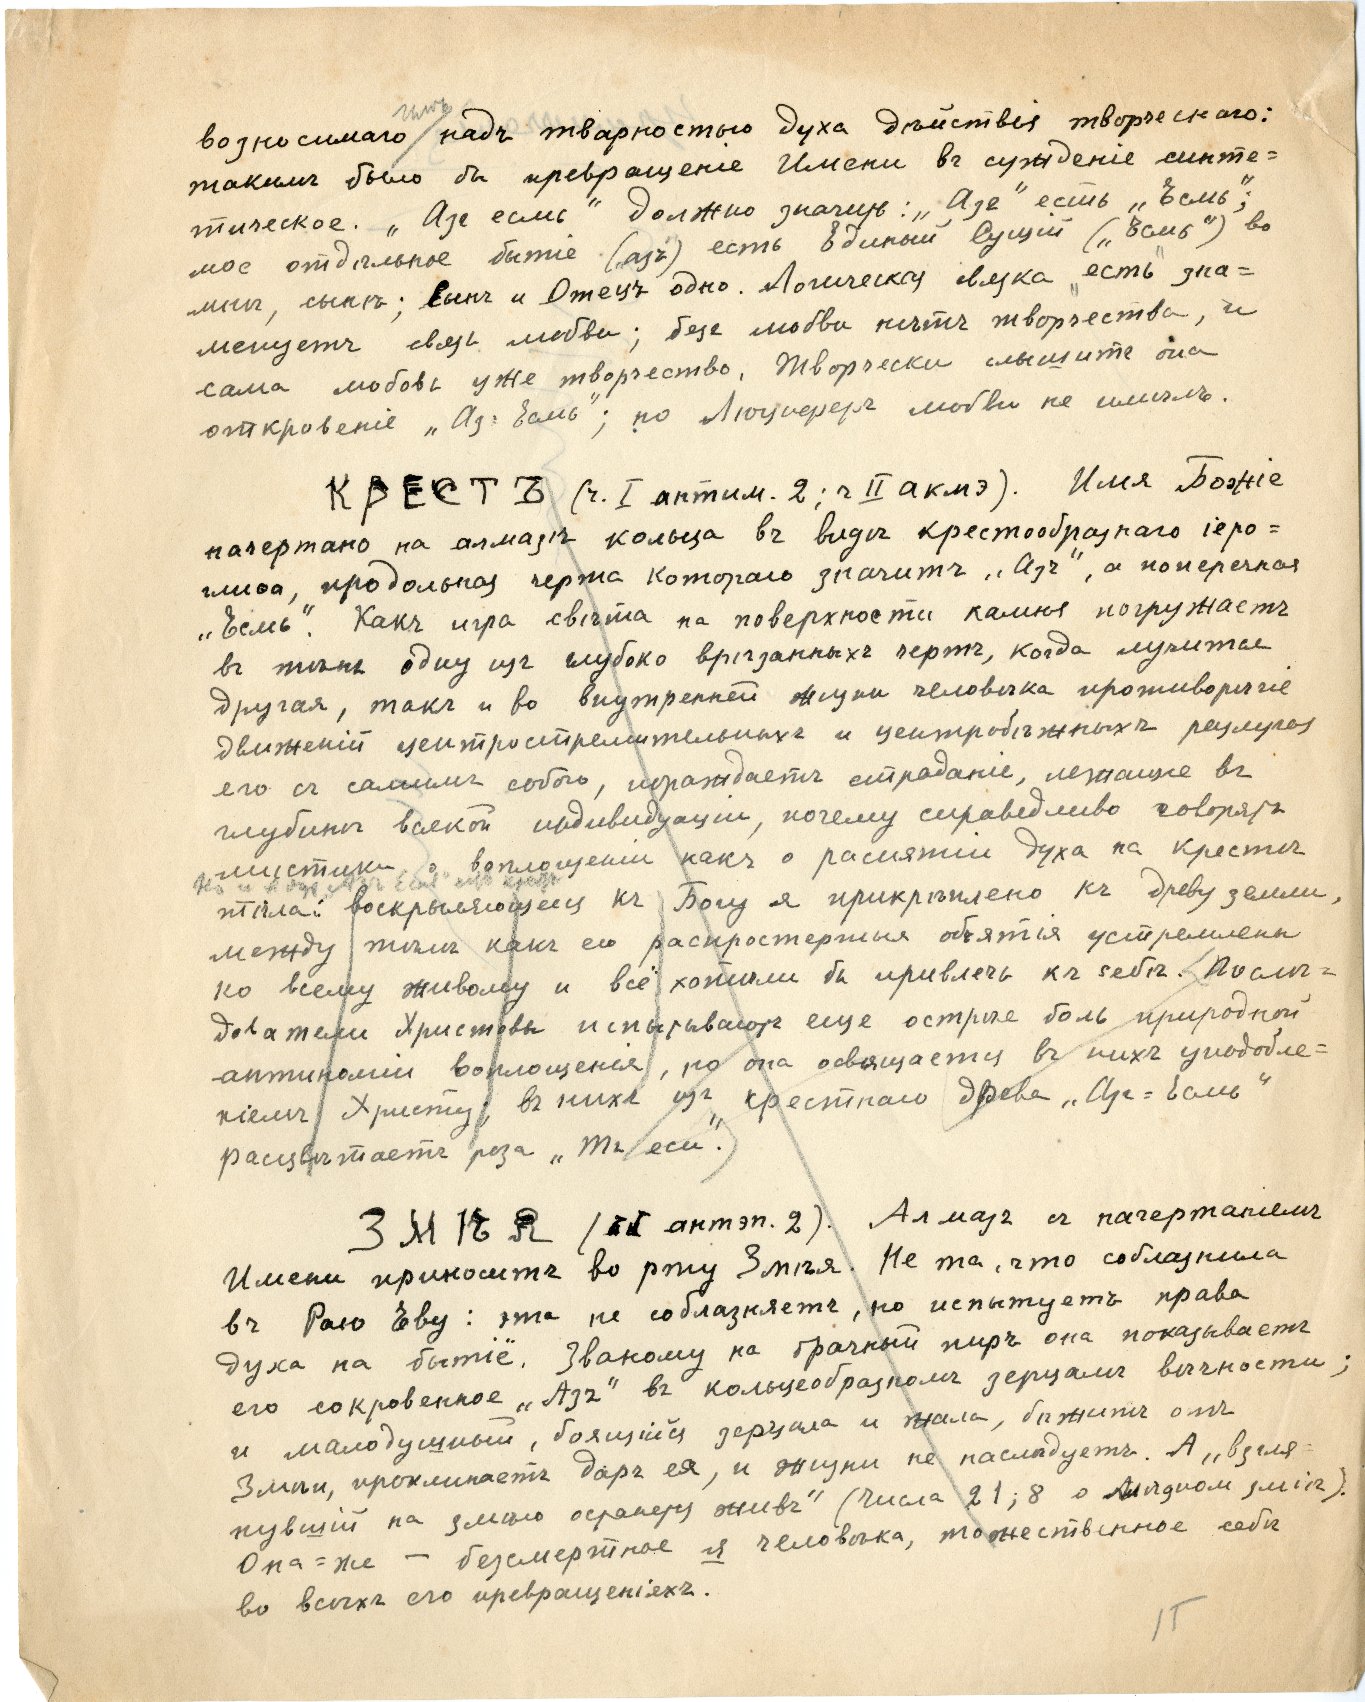 возносимаго надъ тварностью духа дѣйствія творческаго:
такимъ было бы превращеніе Имени въ сужденіе синте=
тическое. „Азъ есмь" должно значить: „Азъ" есть „Есмь";
мое отдѣльное бытіе („азъ") есть Единый Сущій („Есмь") во
мнѣ, сынѣ; Сынъ и Отецъ одно. Логическая связка „есть" зна=
менуетъ связь любви; безъ любви нѣтъ творчества, и
сама любовь уже творчество. Творчески слышитъ она
откровеніе „Азъ Есмь"; но Люциферъ любви не имѣлъ.
КРЕСТЪ (ч. I антим. 2; ч II акмэ). Имя Божіе
начертано на алмазѣ кольца въ видѣ крестообразнаго іеро=
глифа, продольная черта котораго значитъ „Азъ", а поперечная
„Есмь". Какъ игра свѣта на поверхности камня погружаетъ
въ тѣнь одну изъ глубоко врѣзанныхъ чертъ, когда лучится
другая, такъ и во внутренней жизни человѣка противорѣчіе
движеній центростремительныхъ и центробѣжныхъ, разлучая
его съ самимъ собою, порождаетъ страданіе, лежащее въ
глубинѣ всякой индивидуаціи, почему справедливо говорятъ
мистики о воплощеніи какъ о распятіи духа на крестѣ
тѣла: воскрыляющееся къ Богу я прикрѣплено къ древу земли,
между тѣмъ какъ его распростертыя объятія устремлены
ко всему живому и всё хотѣли бы привлечь къ себѣ. Послѣ=
дователи Христовы испытываютъ еще острѣе боль природной
антиноміи воплощенія, но она освящается въ нихъ уподобле=
ніемъ Христу; въ нихъ изъ крестнаго древа „Азъ=Есмь"
расцвѣтаетъ роза „Ты еси".
ЗМѢЯ (II антэп. 2). Алмазъ съ начертаніемъ
Имени приноситъ во рту Змѣя. Не та, что соблазнила
въ Раю Еву: эта не соблазняетъ, но испытуетъ права
духа на бытіё. Званому на брачный пиръ она показываетъ
его сокровенное „Азъ" въ кольцеобразномъ зерцалѣ вѣчности;
и малодушный, боящійся зерцала и жала, бѣжитъ отъ
Змѣи, проклинаетъ даръ ея, и жизни не наслѣдуетъ. А „взгля=
нувшій на змѣю останется живъ" (Числа 21; 8 о мѣдном зміѣ).
Она=же — безсмертное я человѣка, тожественное себѣ
во всѣхъ его превращеніяхъ.